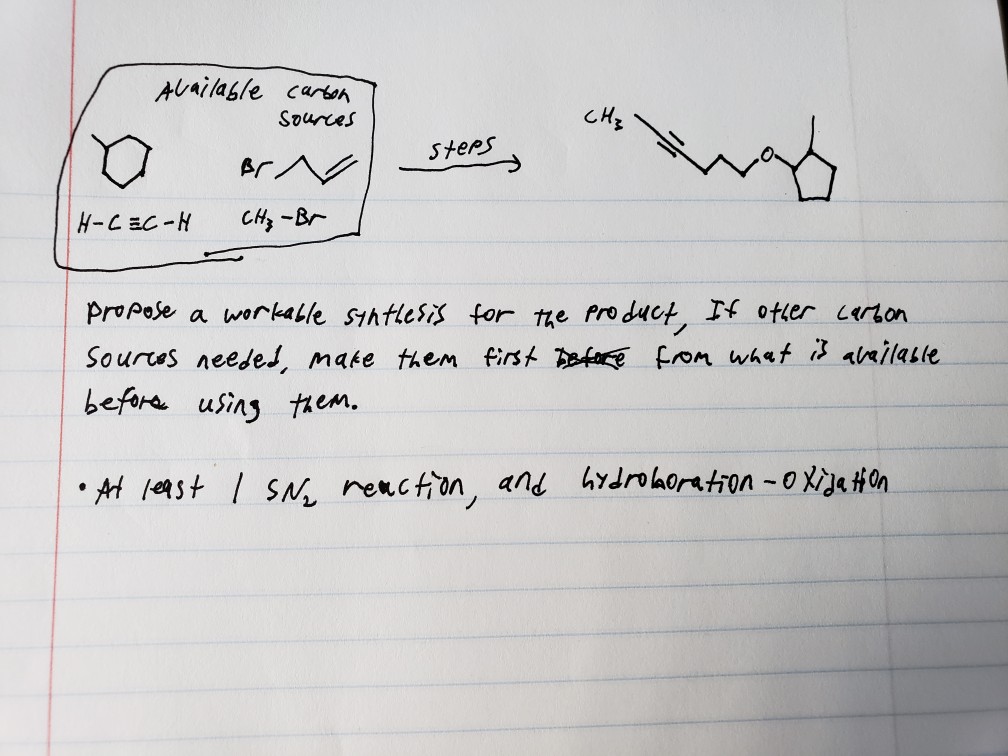 Available carbon
sources
Br
H-C≡C-H
CH3-Br
steps
CH3
O
propose a workable synthesis for the product, If other carbon
sources needed, make them first before from what is available
before using them.
• At least 1 SN2 reaction, and hydroboration-oxidation